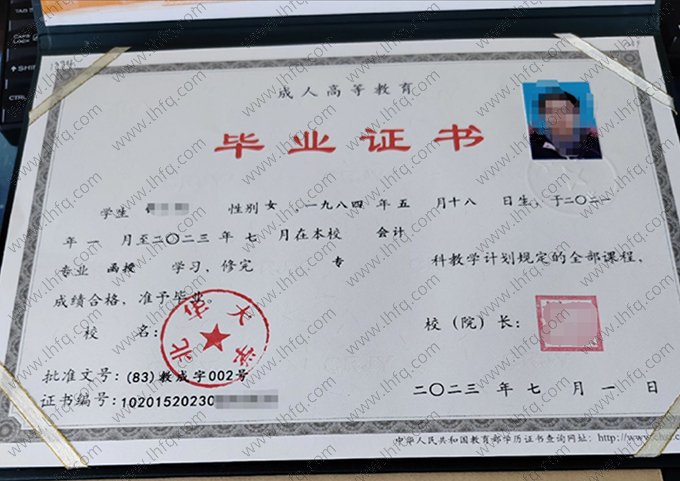 成人高等教育
毕业证书
学生 性别 女 ,一九八四 年 五 月十八 日生,于二〇二一
年 一 月至二〇二三 年 七 月在本校 会计
专业 函授 学习,修完 专 科教学计划规定的全部课程,
成绩合格,准予毕业。
校 名: 校(院)长:
北华大学
批准文号:(83)教成字002号
证书编号:10201520230
二〇二三 年 七 月 一 日
中华人民共和国教育部学历证书查询网址:http://www.chsi.
www.lhfq.com
TAB
CAPS LOCK
CTRL